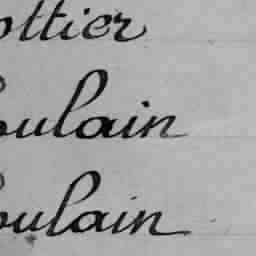 ottier
oulain
oulain